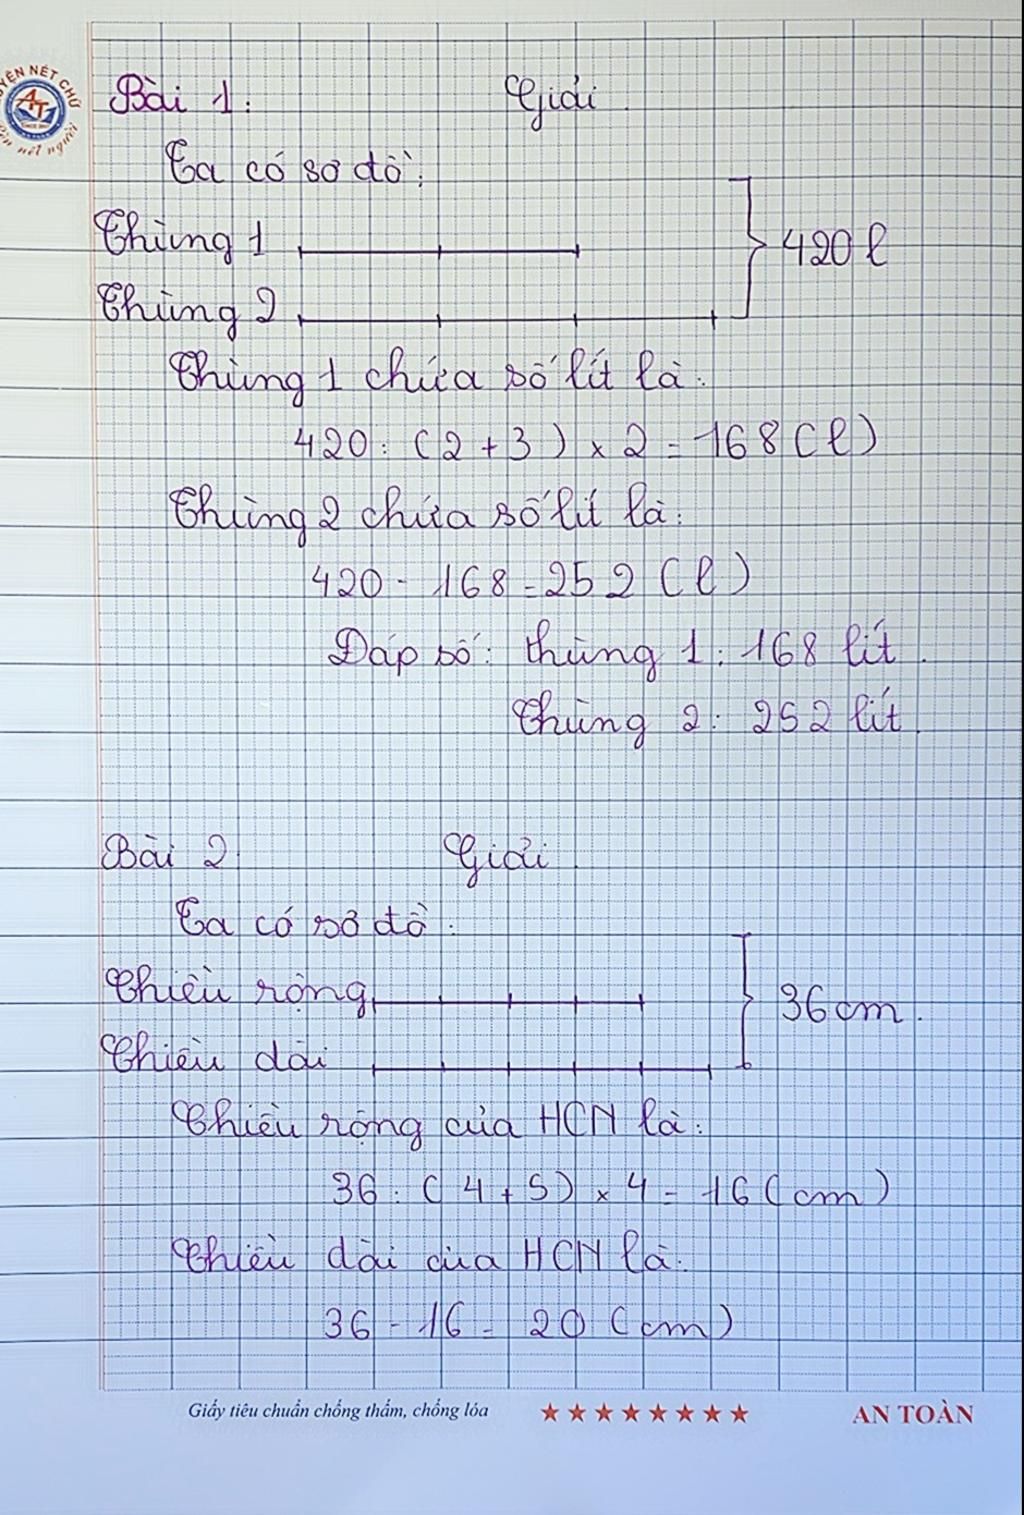 LUYỆN NÉT CHỮ
AT
Rèn nết người
Bài 1: Giải
Ta có sơ đồ:
Thùng 1
420 l
Thùng 2
Thùng 1 chứa số lít là:
420 : (2 + 3) x 2 = 168 (l)
Thùng 2 chứa số lít là:
420 - 168 = 252 (l)
Đáp số: thùng 1: 168 lít.
Thùng 2: 252 lít.
Bài 2: Giải.
Ta có sơ đồ:
Chiều rộng
36 cm.
Chiều dài
Chiều rộng của HCN là:
36 : (4 + 5) x 4 = 16 (cm)
Chiều dài của HCN là:
36 - 16 = 20 (cm)
Giấy tiêu chuẩn chống thấm, chống lóa ★★★★★★★★ AN TOÀN